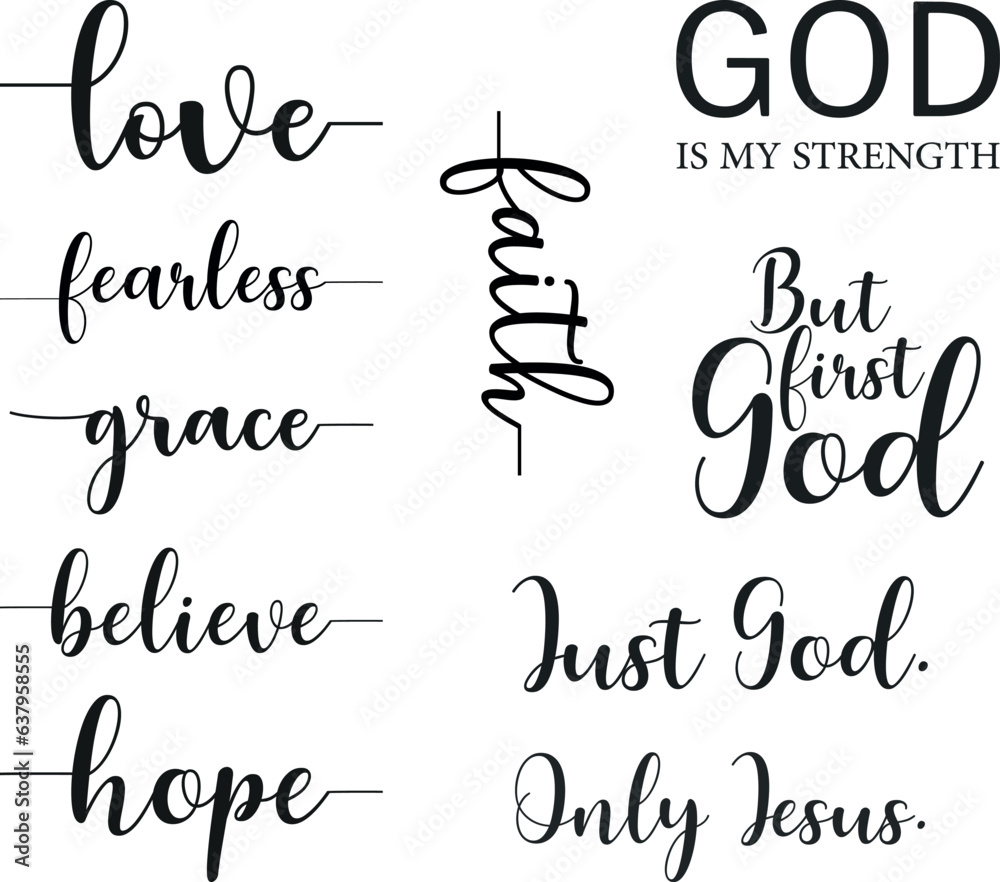 love
fearless
grace
believe
hope
faith
GOD
IS MY STRENGTH
But
first
God
Just God.
Only Jesus.
Adobe Stock | #637958555